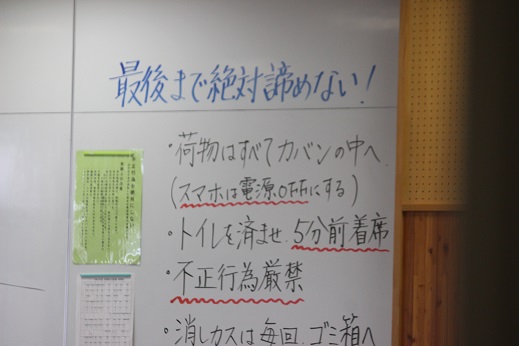 最後まで絶対諦めない!
・荷物はすべてカバンの中へ
(スマホは電源OFFにする)
・トイレを済ませ、5分前着席
・不正行為厳禁
・消しカスは毎回、ゴミ箱へ